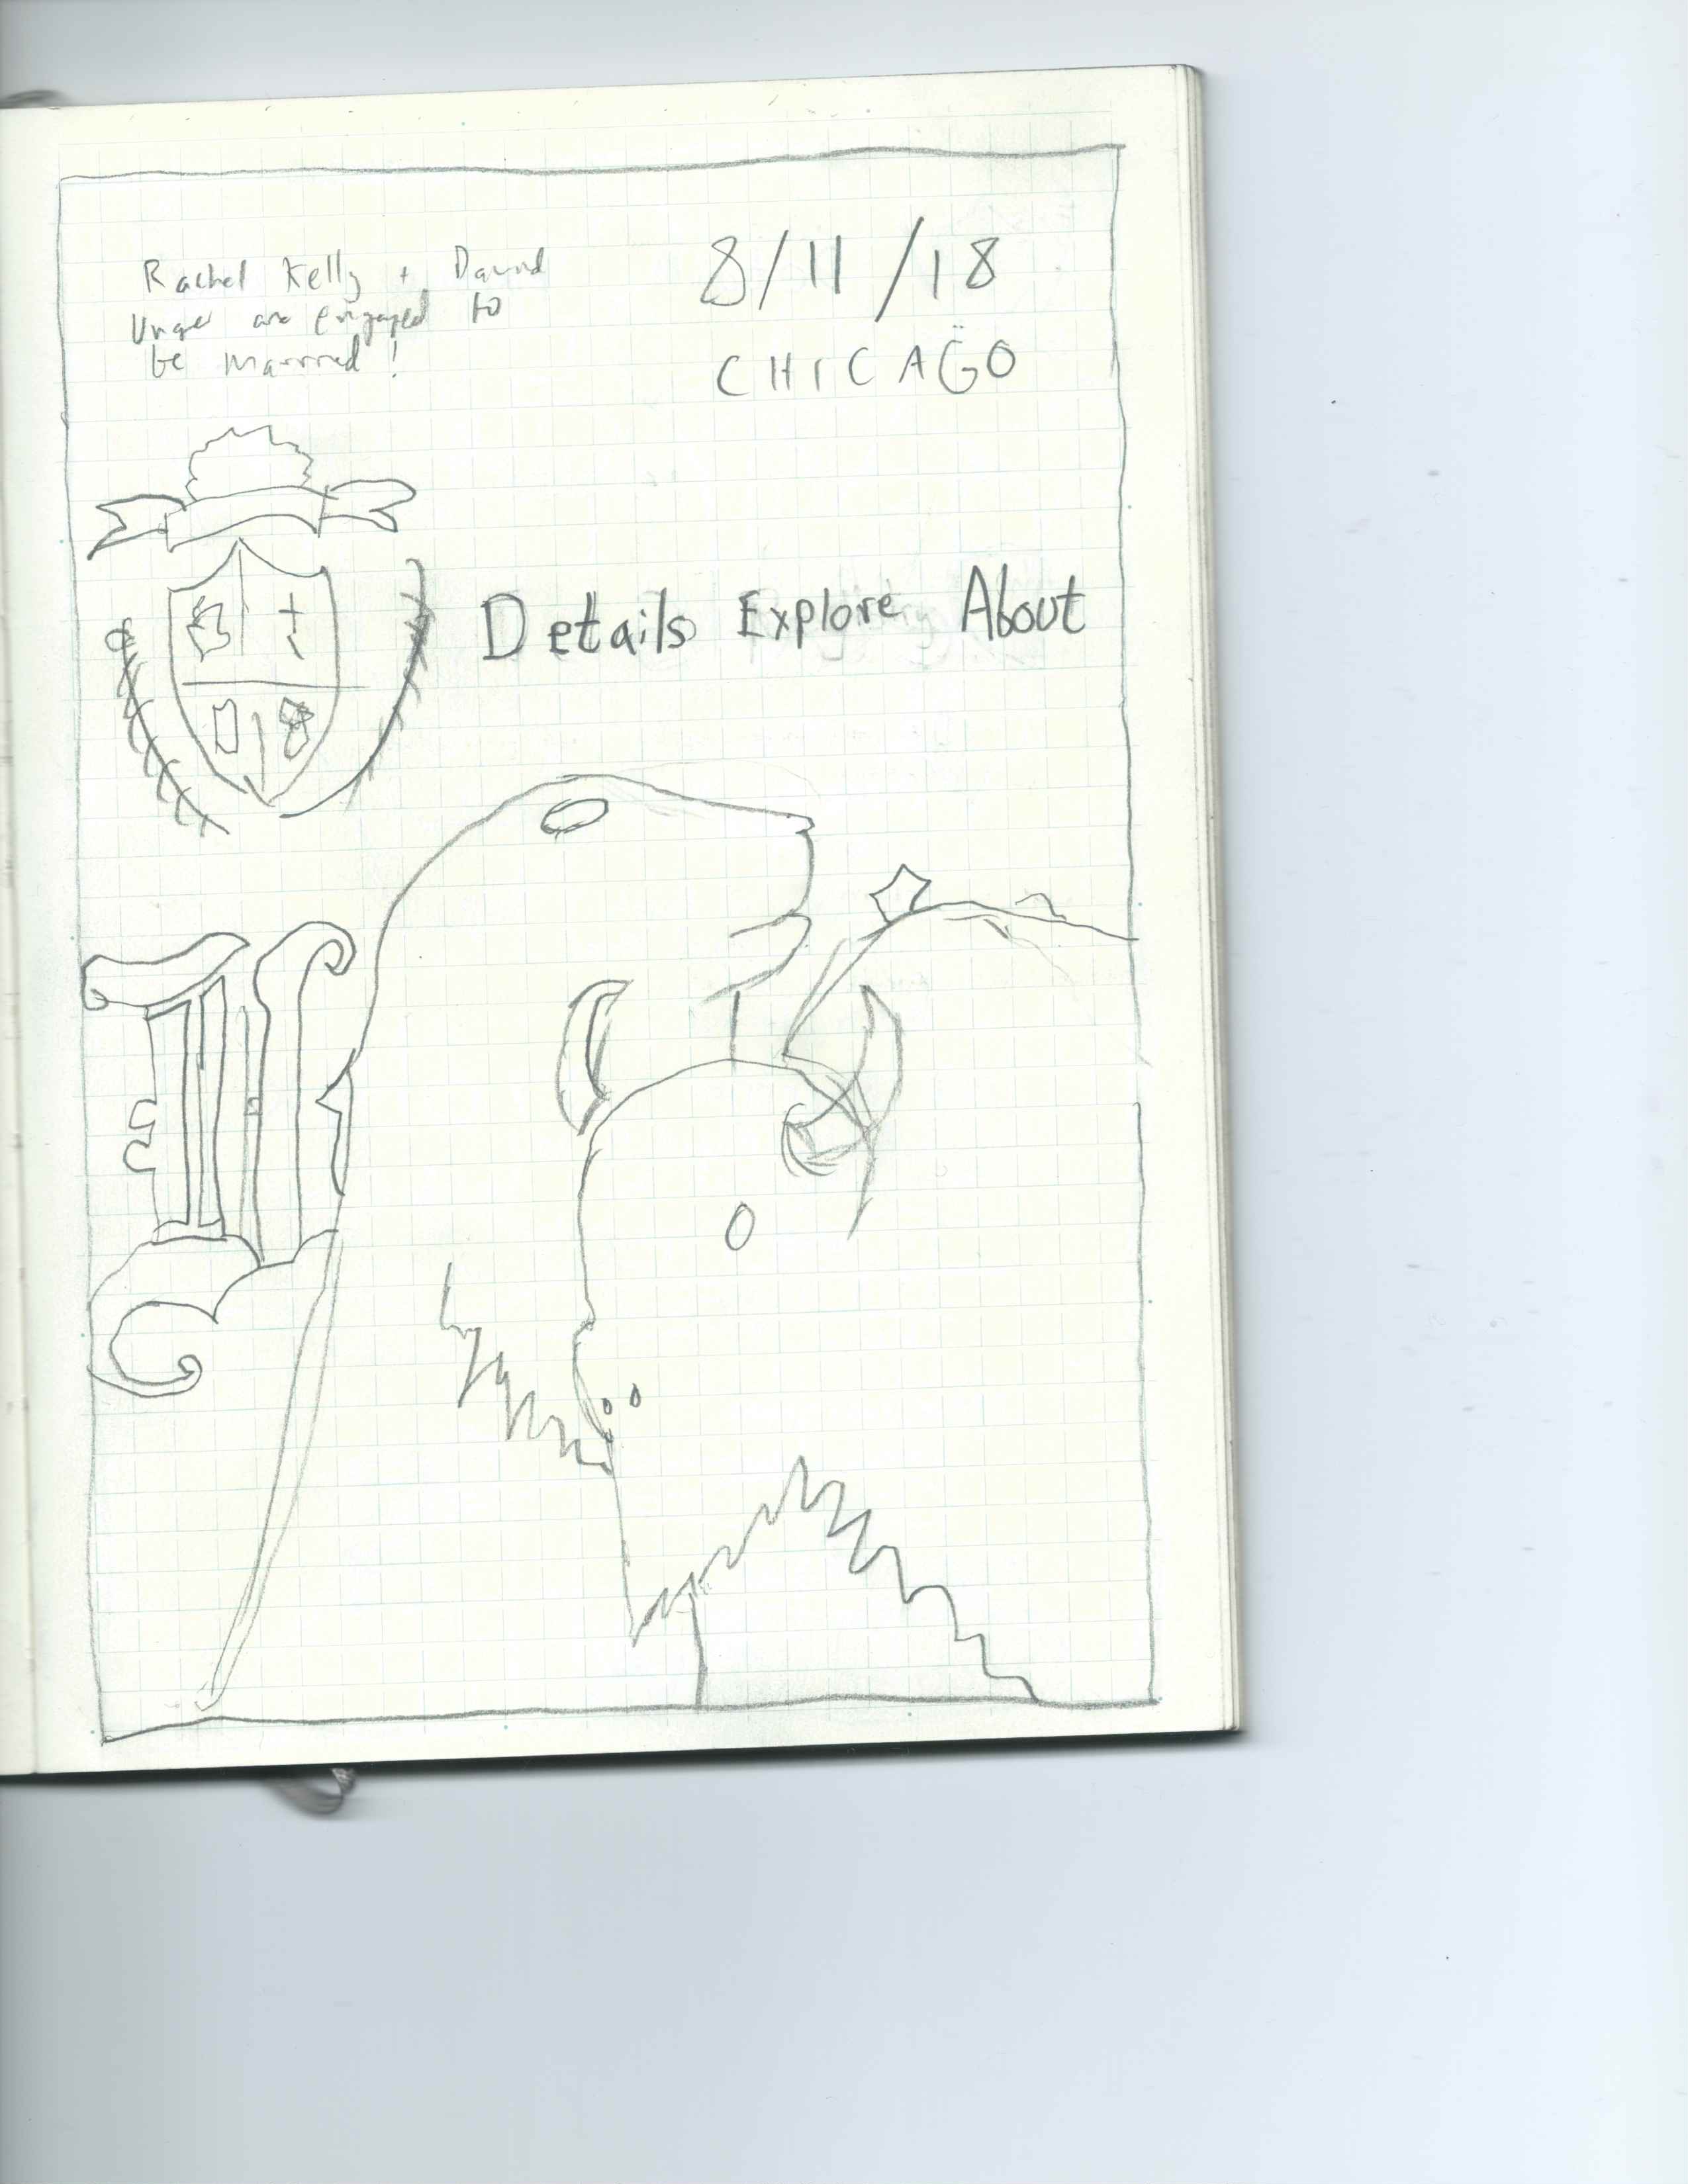 Rachel Kelly + David
Unger are engaged to
be married!
8/11/18
CHICAG̈O
Details Explore About